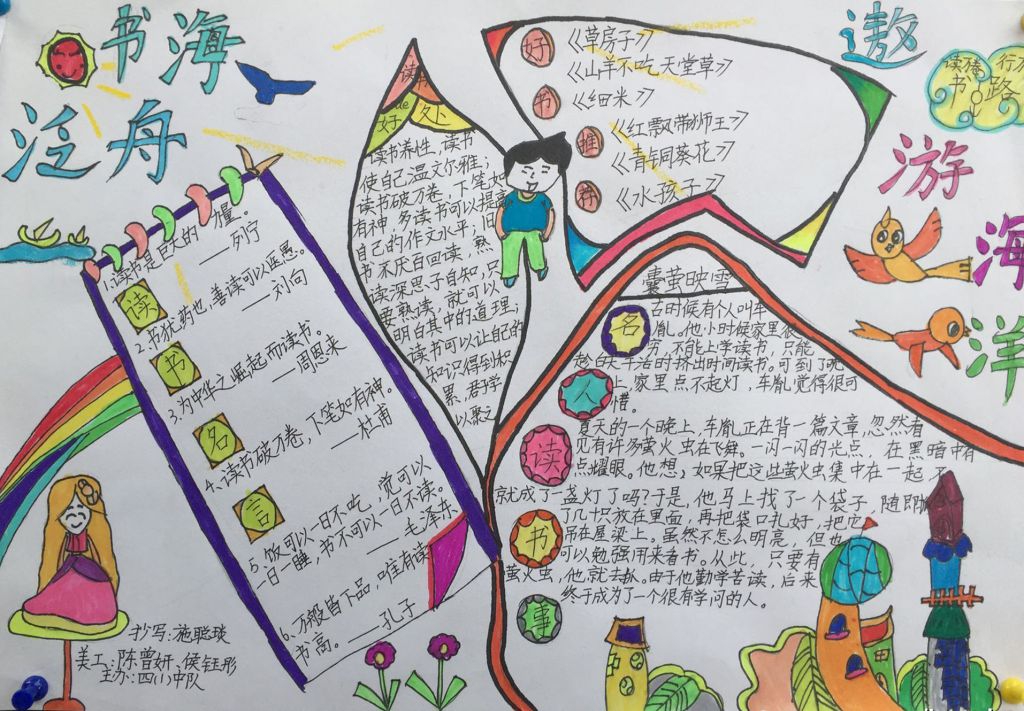 书海
泛舟
遨
游
海
洋
读
书
行
路
1.读书是巨大的力量。
——列宁
2.书犹药也，善读可以医愚。
——刘向
3.为中华之崛起而读书。
——周恩来
4.读书破万卷，下笔如有神。
——杜甫
5.饭可以一日不吃，觉可以
一日一睡，书不可以一日不读。
——毛泽东
6.万般皆下品，唯有读
书高。——孔子
读
书
名
言
抄写：施聪琰
美工：陈曾妍、侯钰彤
主办：四(1)中队
读
好处
读书养性，读书
使自己温文尔雅；
读书破万卷，下笔如
有神，多读书可以提高
自己的作文水平；旧
书不厌百回读，熟
读深思子自知，只
要熟读，就可以
明白其中的道理，
读书可以让自己的
知识得到积
累，君子学
以聚之
好
书
推
荐
《草房子》
《山羊不吃天堂草》
《细米》
《红飘带狮王》
《青铜葵花》
《水孩子》
囊萤映雪
名
人
读
书
事
古时候有个人叫车
胤。他小时候家里很
穷，不能上学读书，只能
趁白天干活时挤出时间读书。可到了晚
上，家里点不起灯，车胤觉得很可
惜。
夏天的一个晚上，车胤正在背一篇文章，忽然看
见有许多萤火虫在飞舞。一闪一闪的光点，在黑暗中有
点耀眼。他想，如果把这些萤火虫集中在一起，不
就成了一盏灯了吗？于是，他马上找了一个袋子，随即抓
了几十只放在里面，再把袋口扎好，把它
吊在屋梁上。虽然不怎么明亮，但也
可以勉强用来看书。从此，只要有
萤火虫，他就去抓。由于他勤学苦读，后来
终于成为了一个很有学问的人。